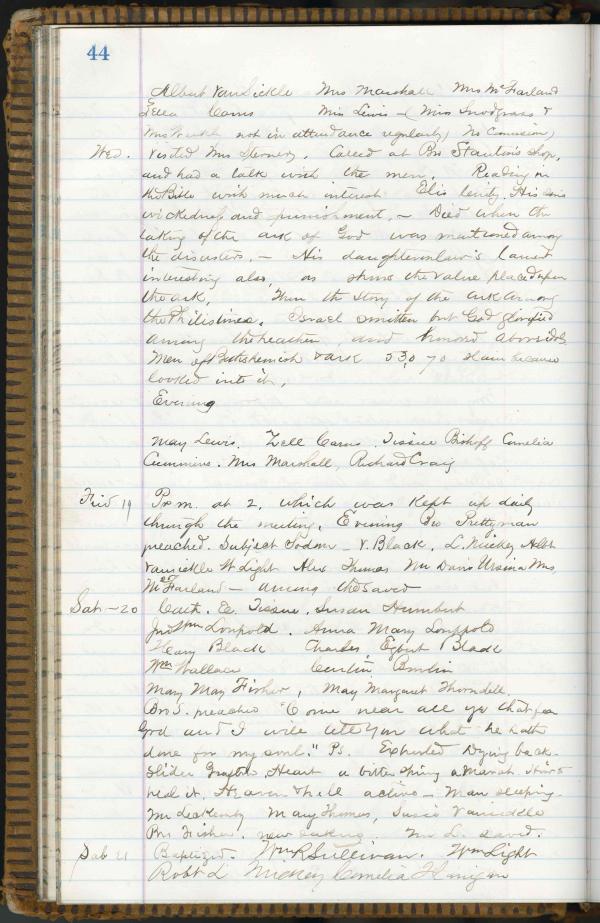 44
Albert VanSickle Mrs Marshall Mrs McFarland
Zella Carns Miss Lewis – (Miss Snodgrass &
Mrs not in attendance regularly) No Commission
Wed. Visited Mrs Called at Bro Stanton's shop,
and had a talk with the men. Reading in
the Bible with much interest Elis levity, His sons
wickedness and punishment, – Died when the
taking of the ark of God was mentioned among
the disasters, – His daughterinlaw's lament
interesting also, as shows the value placed upon
the ark. Then the story of the ark among
the Philistines. Israel smitten but God glorified
among the heathen, and above idols
Men of Bethshemish & ark 530 70 slain because
looked into it.
Evening
May Lewis. Zell Carns. Tissue Bishoff Cornelia
Cummins. Mrs Marshall, Richard Craig
Frid 19 Pr m. at 2. which was kept up daily
through the meeting. Evening Bro Prettyman
preached. Subject Sodom – V. Black, L. Mickey Albt
Vansickle W Light Alex Thomas Mr Davis Ursina Mrs
McFarland – among the saved
Sat – 20 Cath. E. Tissue. Susan Humbert
Jno Wm Lonpold. Anna Mary Lonppold
Henry Black Charles Egbert Black
Wm Wallace
Mary May Fisher, May Margaret Thorndell.
Bro S. preached "Come near all ye that fear
God and I will tell you what he hath
done for my soul." Ps. Exhorted Dying back-
slider Heart a bitter spring a Marah.
heal it. Heaven & hell active – Man sleeping –
Mr Leckemby Mary Thomas, Susie Vansickle
Bro Fisher. new Mr L. saved.
Sab 21 Baptized. Wm R Sullivan. Wm Light
Robt L Mickey Cornelia Flanigan